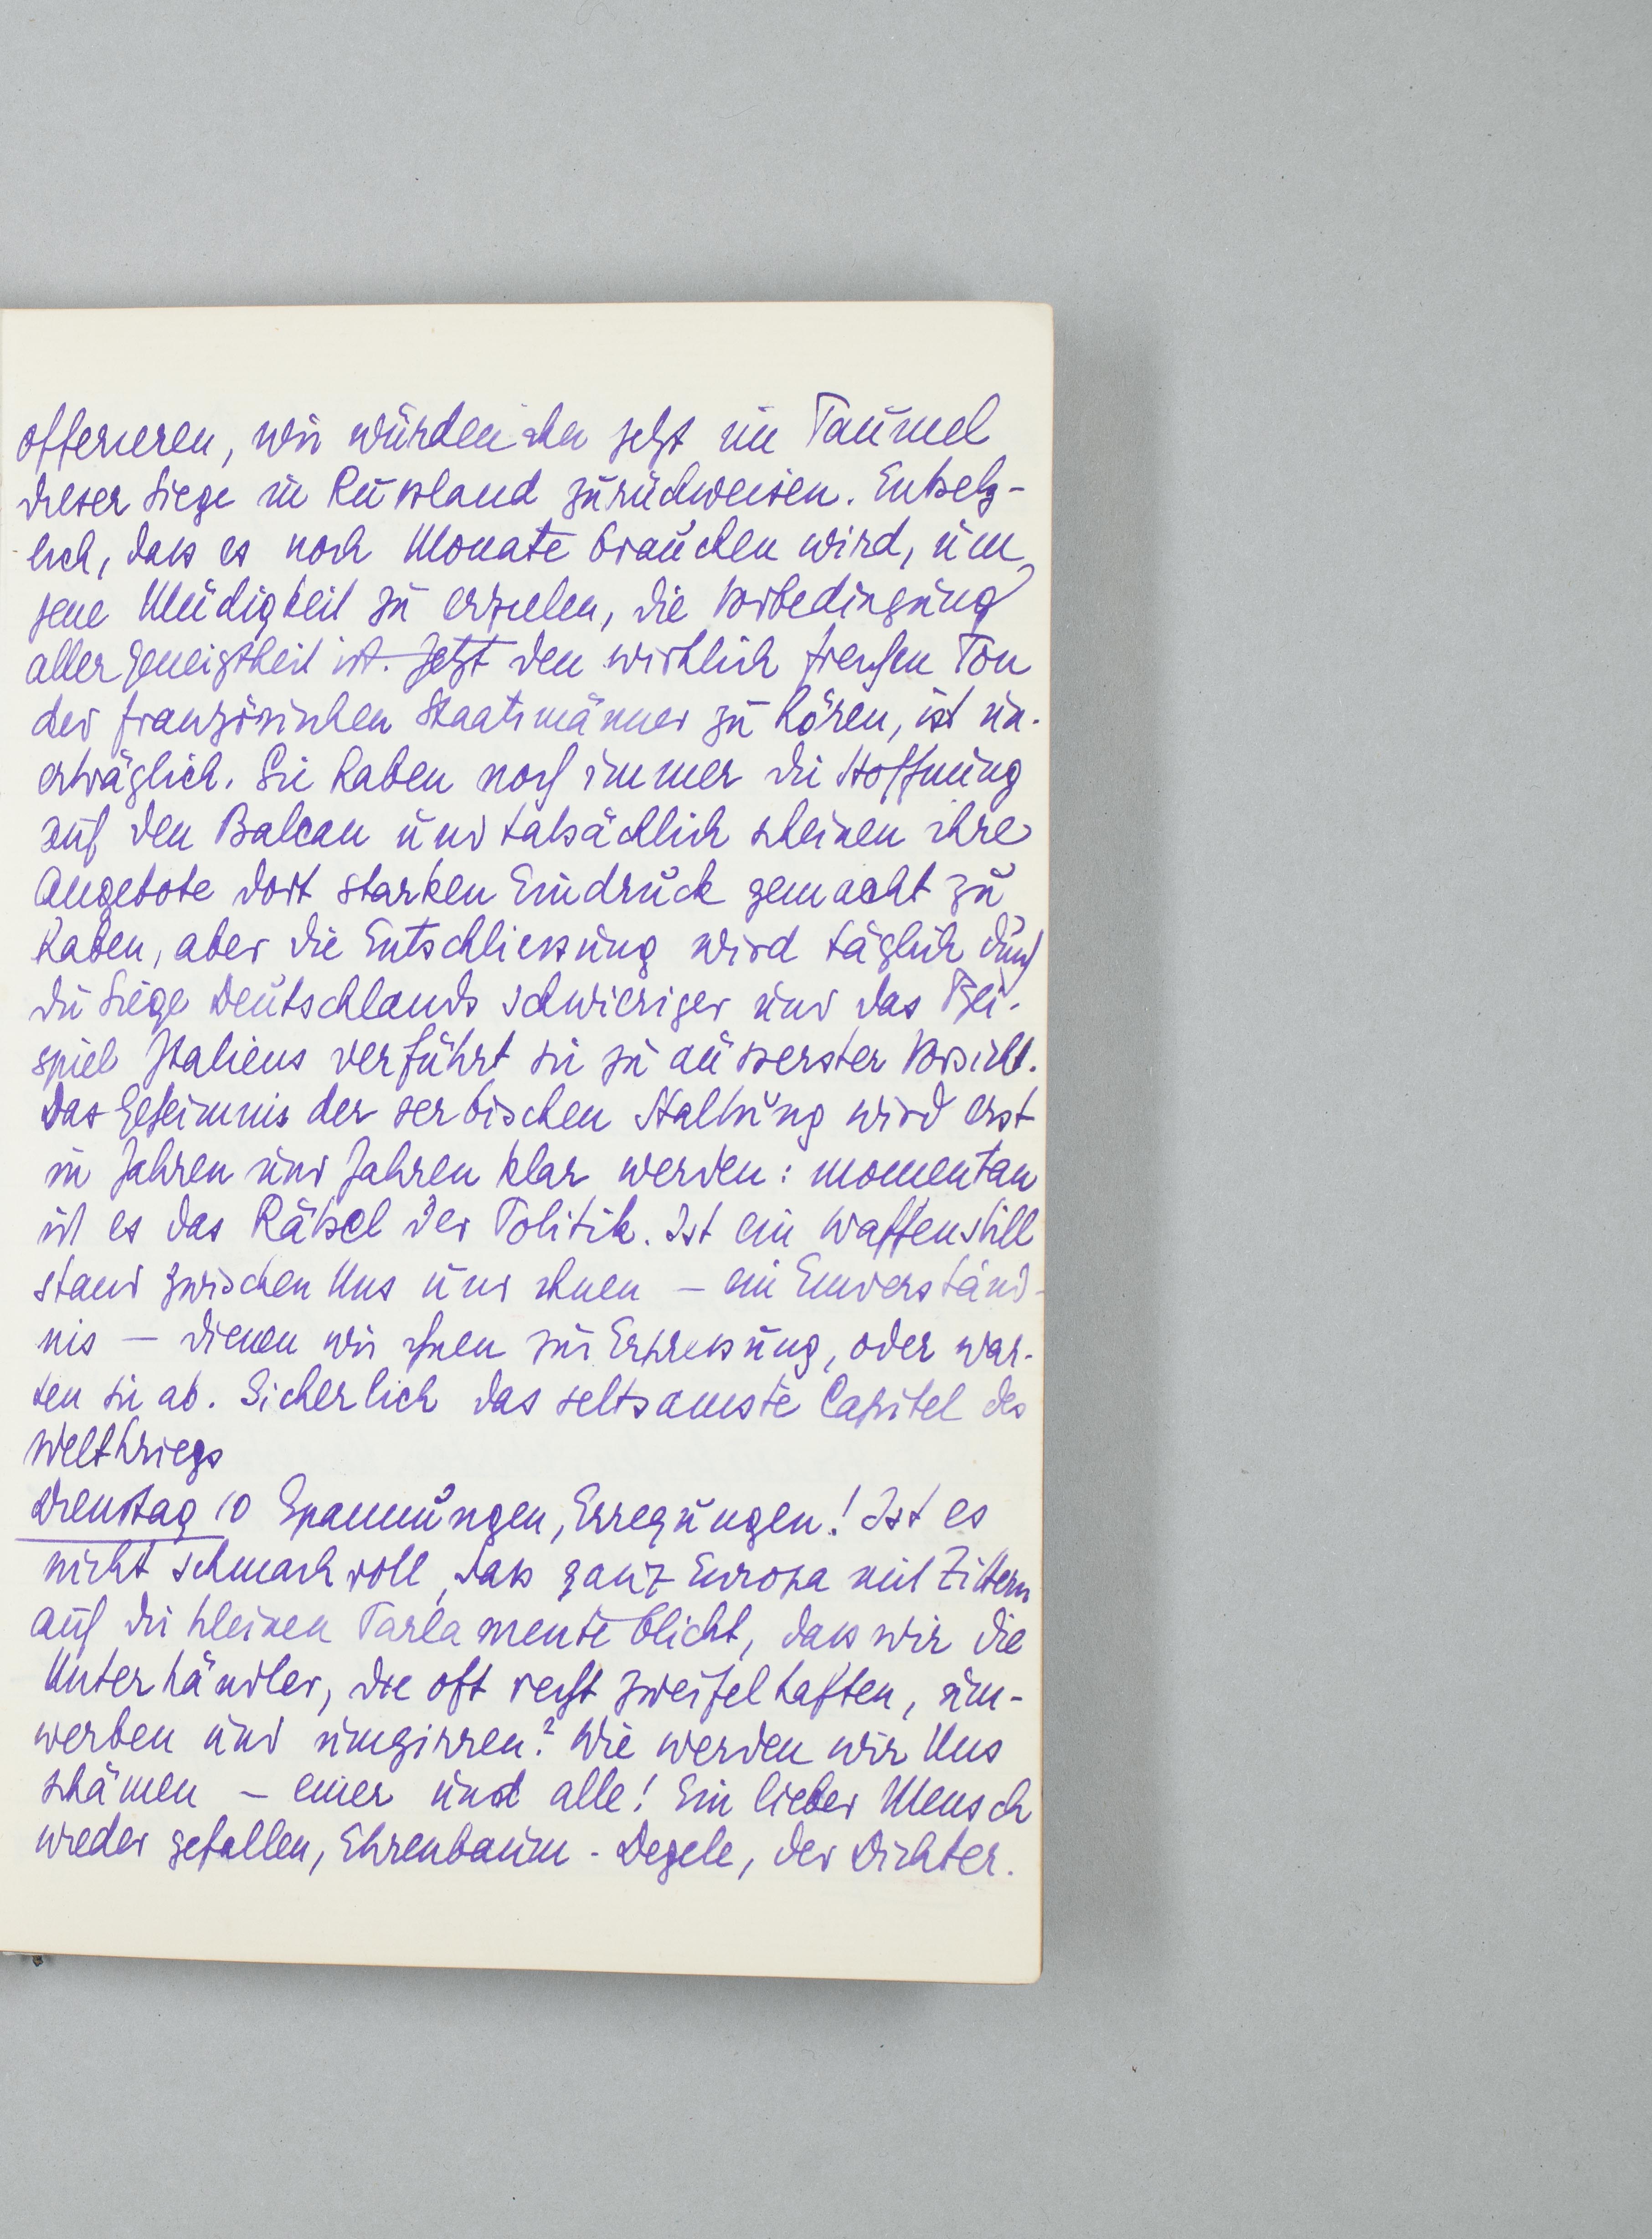 offerieren, wir würden ihn jetzt im Taumel
dieser Siege in Russland zurückweisen. Entsetz-
lich, dass es noch Monate brauchen wird, um
jene Müdigkeit zu erzielen, die Vorbedingung
aller Geneigtheit ist. Jetzt den wirklich frechen Ton
der französischen Staatsmänner zu hören, ist un-
erträglich. Sie haben noch immer die Hoffnung
auf den Balcan und tatsächlich scheinen ihre
Angebote dort starken Eindruck gemacht zu
haben, aber die Entschliessung wird täglich durch
die Siege Deutschlands schwieriger und das Bei-
spiel Italiens verführt sie zu äusserster Vorsicht.
Das Geheimnis der serbischen Haltung wird erst
in Jahren und Jahren klar werden: momentan
ist es das Rätsel der Politik. Ist ein Waffenstill
stand zwischen Uns und ihnen – ein Einverständ-
nis – dienen wir ihnen zur Erpressung, oder war-
ten sie ab. Sicherlich das seltsamste Capitel des
Weltkriegs
Dienstag 10 Spannungen, Erregungen! Ist es
nicht schmachvoll, dass ganz Europa mit Zittern
auf die kleinen Parlamente blickt, dass wir die
Unterhändler, die oft recht zweifelhaften, um-
werben und umgirren? Wie werden wir Uns
schämen – einer und alle! Ein lieber Mensch
wieder gefallen, Ehrenbaum-Degele, der Dichter.